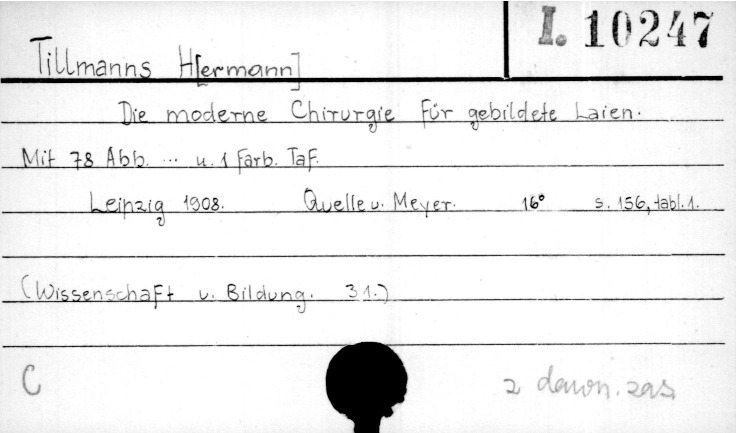 I. 10247
Tillmanns H[ermann]
Die moderne Chirurgie für gebildete Laien.
Mit 78 Abb. ... u. 1 farb. Taf.
Leipzig 1908. Quelle u. Meyer. 16° s. 156, tabl. 1.
(Wissenschaft u. Bildung. 31.)
C
z dawn. zas.